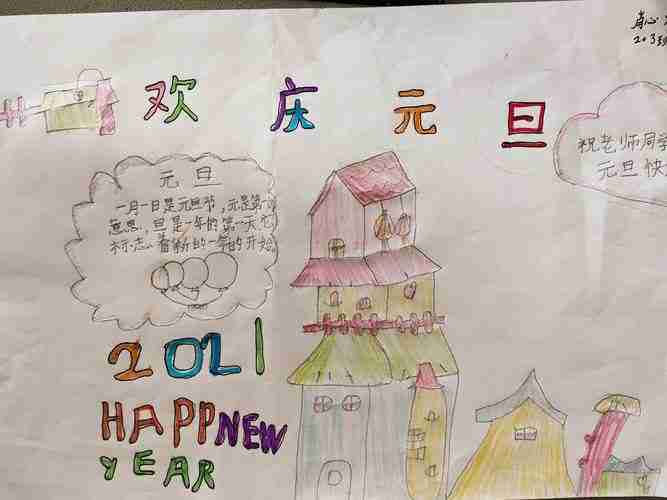 203
欢庆元旦
祝老师同
元旦快
元旦
一月一日是元旦节，元是第
意思.，旦是一年的第一天它
标志、着新的一年的开始
2021
HAPPNEW
YEAR